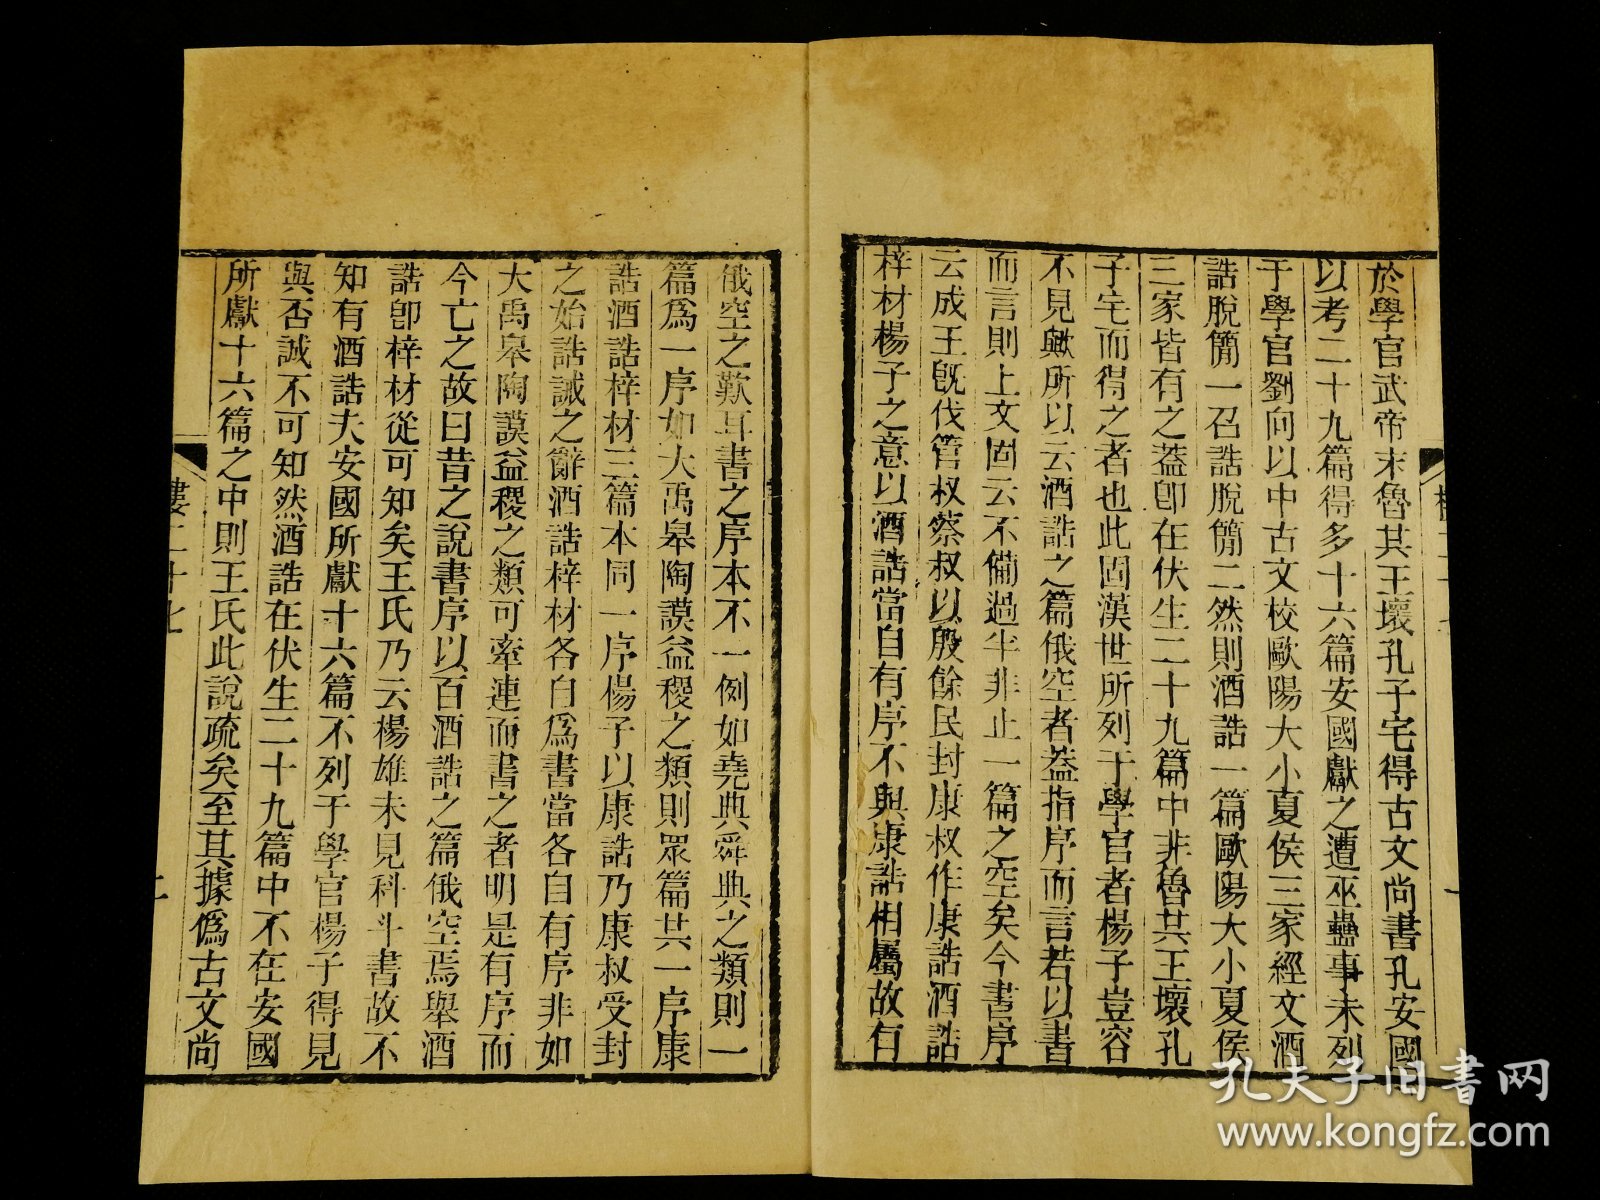 於學官武帝末魯其王壞孔子宅得古文尚書孔安國
以考二十九篇得多十六篇安國獻之遭巫蠱事未列
于學官劉向以中古文校歐陽大小夏侯三家經文酒
誥脫簡一召誥脫簡二然則酒誥一篇歐陽大小夏侯
三家皆有之蓋卽在伏生二十九篇中非魯其王壞孔
子宅而得之者也此固漢世所列于學官者楊子豈容
不見歟所以云酒誥之篇俄空者蓋指序而言若以書
而言則上文固云不備過半非止一篇之空矣今書序
云成王旣伐管叔蔡叔以殷餘民封康叔作康誥酒誥
梓材楊子之意以酒誥當自有序不與康誥相屬故有
俄空之歎耳書之序本不一例如堯典舜典之類則一
篇爲一序如大禹皋陶謨益稷之類則眾篇共一序康
誥酒誥梓材三篇本同一序楊子以康誥乃康叔受封
之始誥誡之辭酒誥梓材各自爲書當各自有序非如
大禹皋陶謨益稷之類可牽連而書之者明是有序而
今亡之故曰昔之說書序以百酒誥之篇俄空焉舉酒
誥卽梓材從可知矣王氏乃云楊雄未見科斗書故不
知有酒誥夫安國所獻十六篇不列于學官楊子得見
與否誠不可知然酒誥在伏生二十九篇中不在安國
所獻十六篇之中則王氏此說疏矣至其據僞古文尚
樓二十七
二
孔夫子旧书网
www.kongfz.com